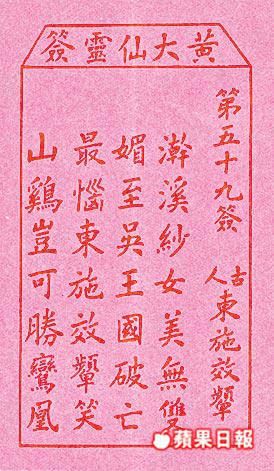 黃大仙靈簽
第五十九簽
古人東施效顰
澣溪紗女美無雙
媚至吳王國破亡
最惱東施效顰笑
山鷄豈可勝鸞凰
蘋果日報